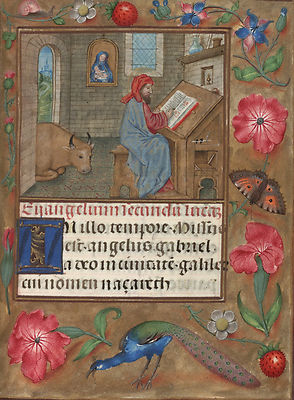 Euangelium secundu lucaz
In illo tempore. Missus
est angelus gabriel
a deo in ciuitatē galilee
cui nomen naçareth